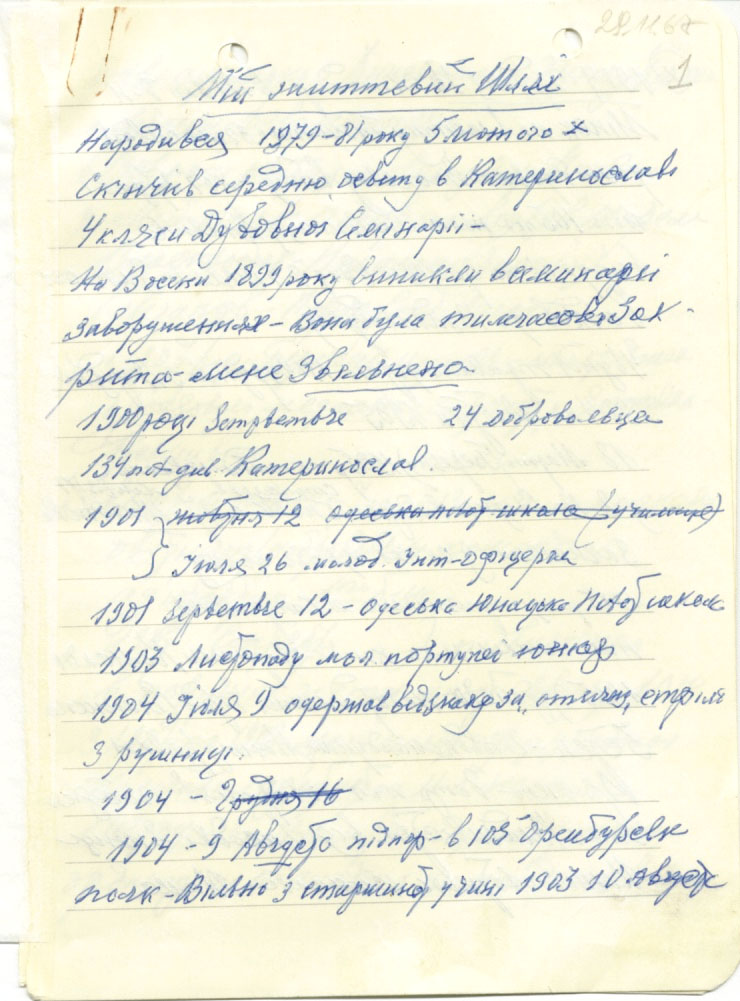 29.11.67
1
Мій життєвий Шлях
Народився 1879-81 року 5 лютого х
Скінчив середню освіту в Катеринославі
4 кляси Духовної Семінарії -
На Весни 1899 року виникли в семинарії
заворушеннях - Вона була тимчасово Зак-
рита - мене Звільнено
1900 році 24 добровольца
134 див. Катеринослав.
1901 жовтня 12 одеська школа (училище)
Іюля 26 молод. Унт-офіцера
1901 12 - одеська Юнацька школа
1903 Листопаду мол. портупей юнкер
1904 Іюля 9 одержав відзнаку за „отличн„ стріл
З рушниці.
1904 - Грудня 16
1904 - 9 Августа підпор - в 105 Оренбурськ
полк - Вільно з старшинст у чині 1903 10 Август